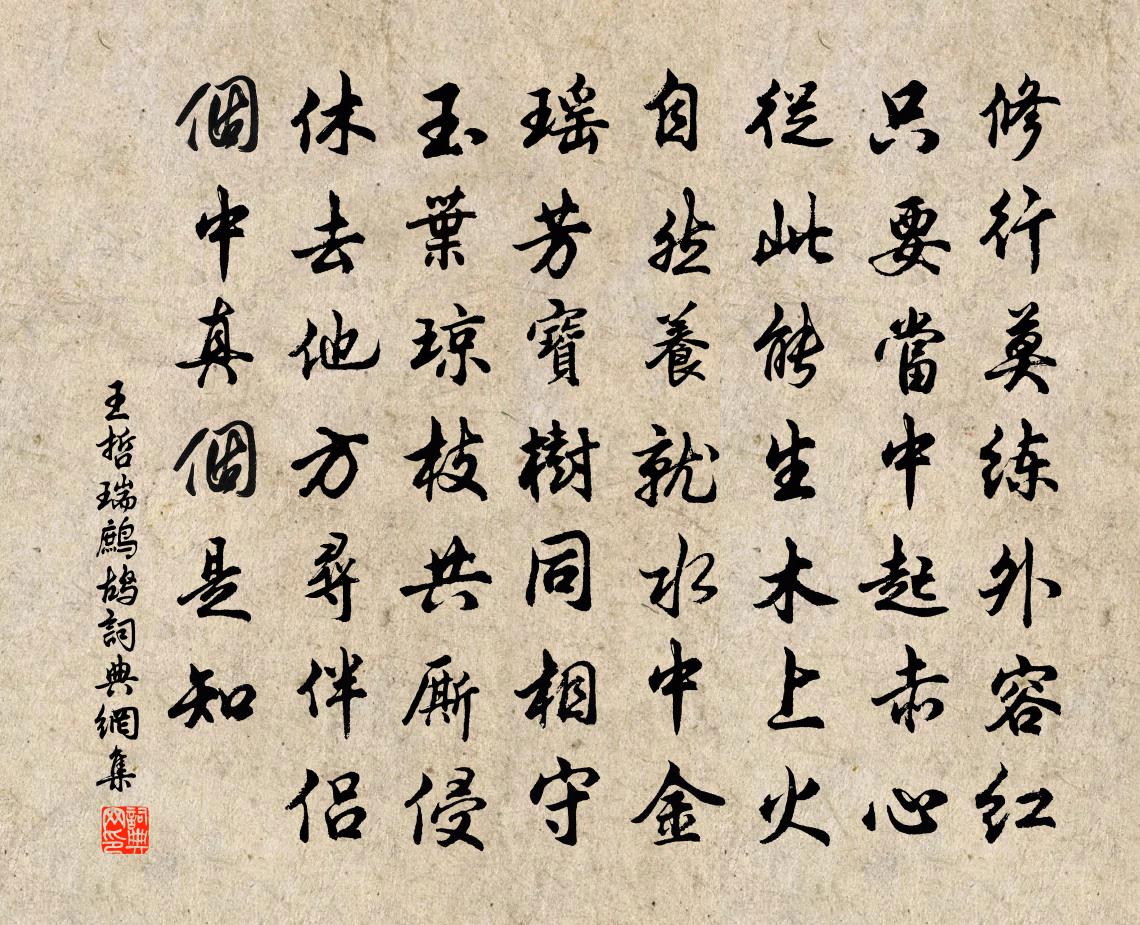 修行莫练外容红
只要當中起赤心
從此能生木上火
自然養就水中金
瑶芳寶樹同相守
玉葉琼枝共厮侵
休去他方尋伴侣
個中真個是知
王哲瑞鷓鴣詞典網集
詞典网印